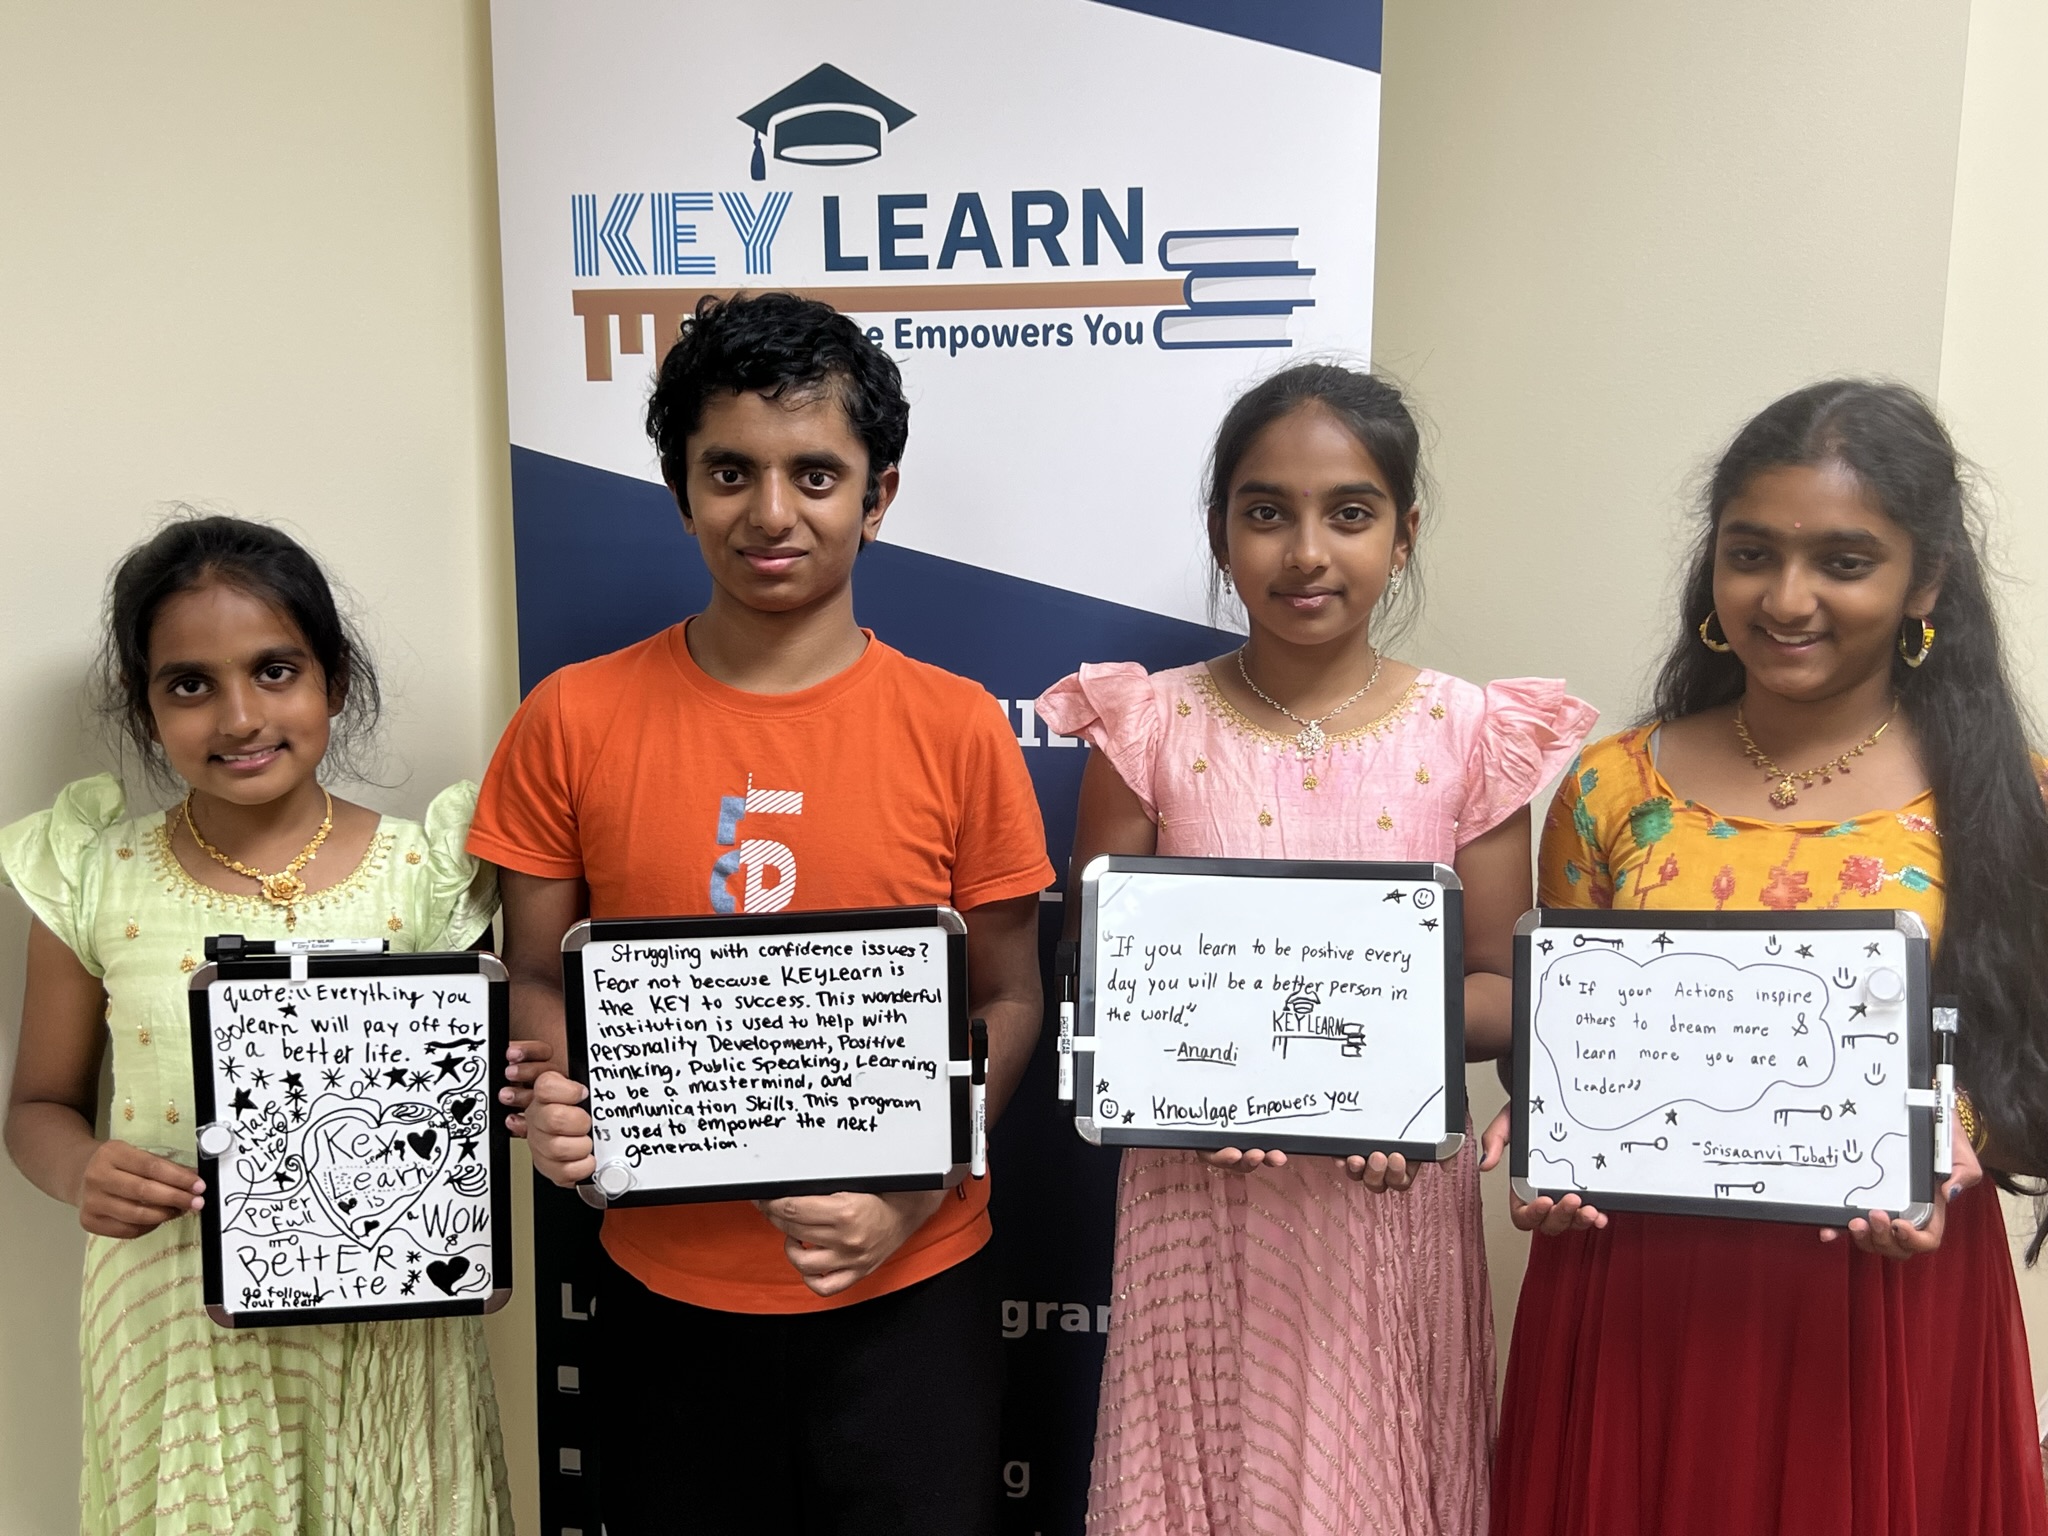 KEY LEARN
e Empowers You
quote: "Everything you
go learn will pay off for
a better life.
Have
a nice
Life
Power
full
Key
Learn
is
a WOW
BeTTER
Life
go follow
your heart
Struggling with confidence issues?
Fear not because KEYLearn is
the KEY to success. This wonderful
institution is used to help with
Personality Development, Positive
Thinking, Public Speaking, Learning
to be a mastermind, and
communication Skills. This program
is used to empower the next
generation.
"If you learn to be positive every
day you will be a better person in
the world."
-Anandi
KEYLEARN
Knowlage Empowers You
"If your Actions inspire
others to dream more &
learn more you are a
Leader"
-Srisaanvi Tubati
gram
g